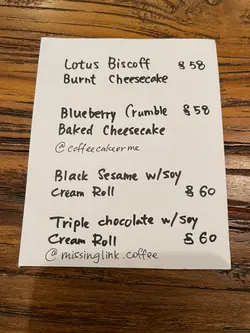 Lotus Biscoff $58
Burnt Cheesecake
Blueberry Crumble $58
Baked Cheesecake
@coffeecakeorme
Black Sesame w/soy
Cream Roll $60
Triple chocolate w/soy
Cream Roll $60
@missinglink.coffee